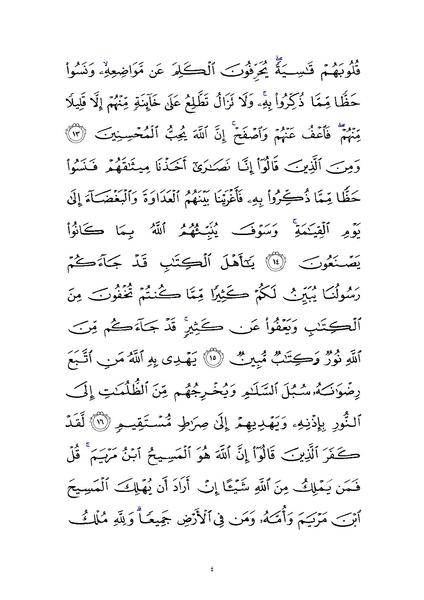 قُلُوبَهُمْ قَٰسِيَةً ۖ يُحَرِّفُونَ ٱلْكَلِمَ عَن مَّوَاضِعِهِۦ ۙ وَنَسُوا۟
حَظًّا مِّمَّا ذُكِّرُوا۟ بِهِۦ ۚ وَلَا تَزَالُ تَطَّلِعُ عَلَىٰ خَآئِنَةٍ مِّنْهُمْ إِلَّا قَلِيلًا
مِّنْهُمْ ۖ فَٱعْفُ عَنْهُمْ وَٱصْفَحْ ۚ إِنَّ ٱللَّهَ يُحِبُّ ٱلْمُحْسِنِينَ ١٣
وَمِنَ ٱلَّذِينَ قَالُوٓا۟ إِنَّا نَصَٰرَىٰٓ أَخَذْنَا مِيثَٰقَهُمْ فَنَسُوا۟
حَظًّا مِّمَّا ذُكِّرُوا۟ بِهِۦ فَأَغْرَيْنَا بَيْنَهُمُ ٱلْعَدَاوَةَ وَٱلْبَغْضَآءَ إِلَىٰ
يَوْمِ ٱلْقِيَٰمَةِ ۚ وَسَوْفَ يُنَبِّئُهُمُ ٱللَّهُ بِمَا كَانُوا۟
يَصْنَعُونَ ١٤ يَٰٓأَهْلَ ٱلْكِتَٰبِ قَدْ جَآءَكُمْ
رَسُولُنَا يُبَيِّنُ لَكُمْ كَثِيرًا مِّمَّا كُنتُمْ تُخْفُونَ مِنَ
ٱلْكِتَٰبِ وَيَعْفُوا۟ عَن كَثِيرٍ ۚ قَدْ جَآءَكُم مِّنَ
ٱللَّهِ نُورٌ وَكِتَٰبٌ مُّبِينٌ ١٥ يَهْدِى بِهِ ٱللَّهُ مَنِ ٱتَّبَعَ
رِضْوَٰنَهُۥ سُبُلَ ٱلسَّلَٰمِ وَيُخْرِجُهُم مِّنَ ٱلظُّلُمَٰتِ إِلَى
ٱلنُّورِ بِإِذْنِهِۦ وَيَهْدِيهِمْ إِلَىٰ صِرَٰطٍ مُّسْتَقِيمٍ ١٦ لَّقَدْ
كَفَرَ ٱلَّذِينَ قَالُوٓا۟ إِنَّ ٱللَّهَ هُوَ ٱلْمَسِيحُ ٱبْنُ مَرْيَمَ ۚ قُلْ
فَمَن يَمْلِكُ مِنَ ٱللَّهِ شَيْـًٔا إِنْ أَرَادَ أَن يُهْلِكَ ٱلْمَسِيحَ
ٱبْنَ مَرْيَمَ وَأُمَّهُۥ وَمَن فِى ٱلْأَرْضِ جَمِيعًا ۗ وَلِلَّهِ مُلْكُ
٤